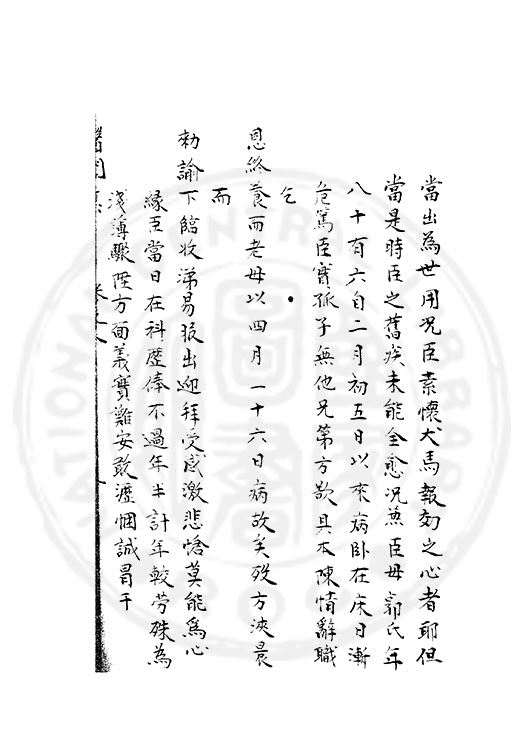 當出為世用况臣素懷犬馬報効之心者耶但
當是時臣之舊疾未能全愈况蒸臣母郭氏年
八十有六自二月初五日以來病卧在床日漸
危篤臣實孤子無他兄第方欲具本陳情辭職
乞
恩終養而老母以四月一十六日病故矣殁方浹晨
而
勅諭下臨收涕易服出迎拜受感激悲愴莫能為心
緣臣當日在科歷俸不過年半計年較劳殊為
淺薄驟陞方面義實難安敢瀝悃誠冐干